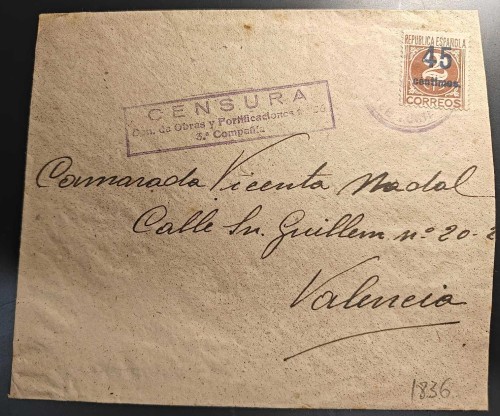 REPUBLICA ESPAÑOLA
45
2
centimos.
CORREOS
CENSURA
Bon. de Obras y Fortificaciones
3.ª Compañía
Camarada Vicenta Nadal
Calle Sn. Guillem nº 20-2
Valencia
1836